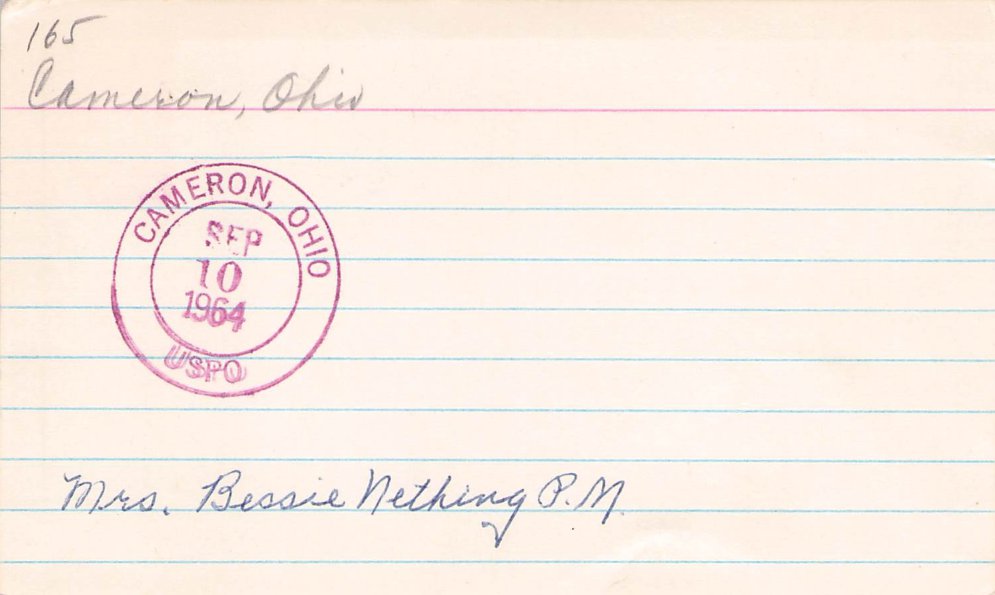 165
Cameron, Ohio
CAMERON, OHIO
SEP
10
1964
USPO
Mrs. Bessie Nething P.M.